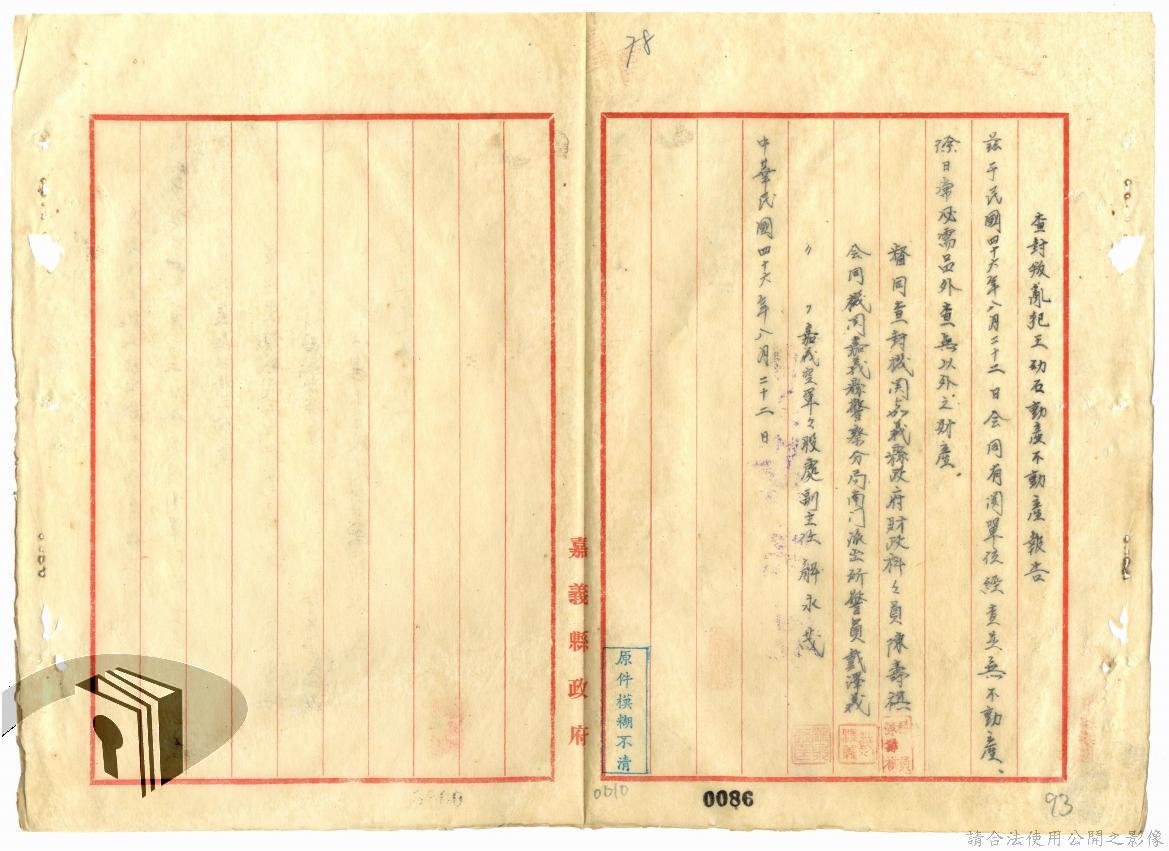 78
查封叛亂犯王功石動產不動產報告
茲于民國四十六年八月二十二日会同有関單位經查並無不動產、
除日常必需品外查無以外之財產。
督同查封機関嘉義縣政府財政科々員陳壽祺
会同機関嘉義縣警察分局南门派出所警員戴澤義
〃 〃 嘉義空軍々眷處副主任解永茂
中華民國四十六年八月二十二日
嘉義縣政府
原件模糊不清
0010
0086
93
請合法使用公開之影像